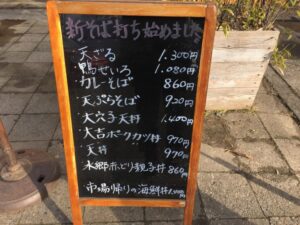 新そば打ち始めました
天ざる 1.300円
鴨せいろ 1.080円
カレーそば 860円
天ぷらそば 920円
大穴子天丼 1.400円
大吉ポークカツ丼 970円
天丼 970円
水郷赤どり親子丼 860円
市場帰りの海鮮丼